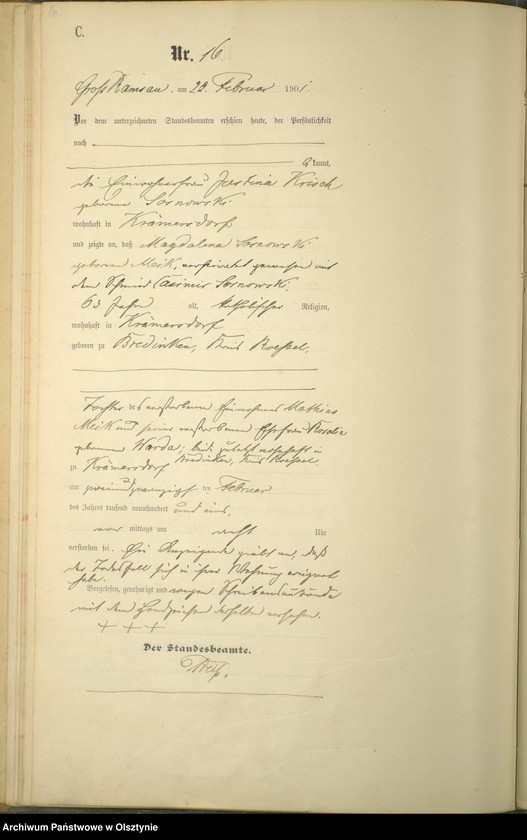 C.
Nr. 16
Groß Ramsau, am 22. Februar 1901.
Vor dem unterzeichneten Standesbeamten erschien heute, der Persönlichkeit
nach
kannt,
die Einwohnerfrau Justina Krisch
geborene Sosnowski
wohnhaft in Krämersdorf
und zeigte an, daß Magdalena Sosnowski
geborene Meik, verheiratet gewesen mit
dem Schmied Casimir Sosnowski,
63 Jahre alt, katholischer Religion,
wohnhaft in Krämersdorf
geboren zu Bredinken, Kreis Roessel,
Tochter des verstorbenen Einwohners Mathias
Meik und seiner verstorbenen Ehefrau Rosalia
geborenen Warda, beide zuletzt wohnhaft in
Bredinken, Kreis Roessel,
zu Krämersdorf
am zweiundzwanzigsten Februar
des Jahres tausend neunhundert und eins,
vor mittags um acht Uhr
verstorben sei. Die Anzeigende giebt an, daß
der Todesfall sich in ihrer Wohnung ereignet
habe.
Vorgelesen, genehmigt und wegen Schreibensunkunde
mit dem Handzeichen derselben versehen.
+ + +
Der Standesbeamte.
Archiwum Państwowe w Olsztynie